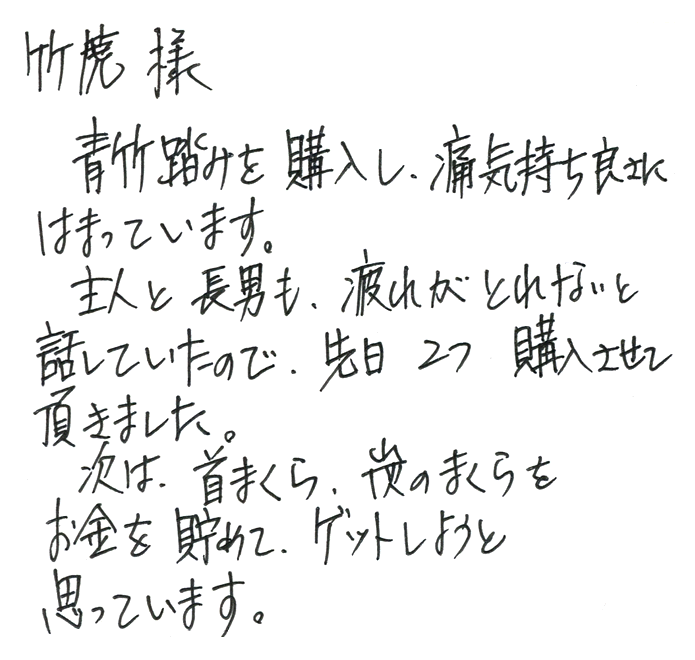 竹虎 様
青竹踏みを 購入し、痛気持ち良さに
はまっています。
主人と 長男も、疲れがとれないと
話していたので、先日 2つ 購入させて
頂きました。
次は、首まくら、炭のまくらを
お金を 貯めて、ゲットしようと
思っています。